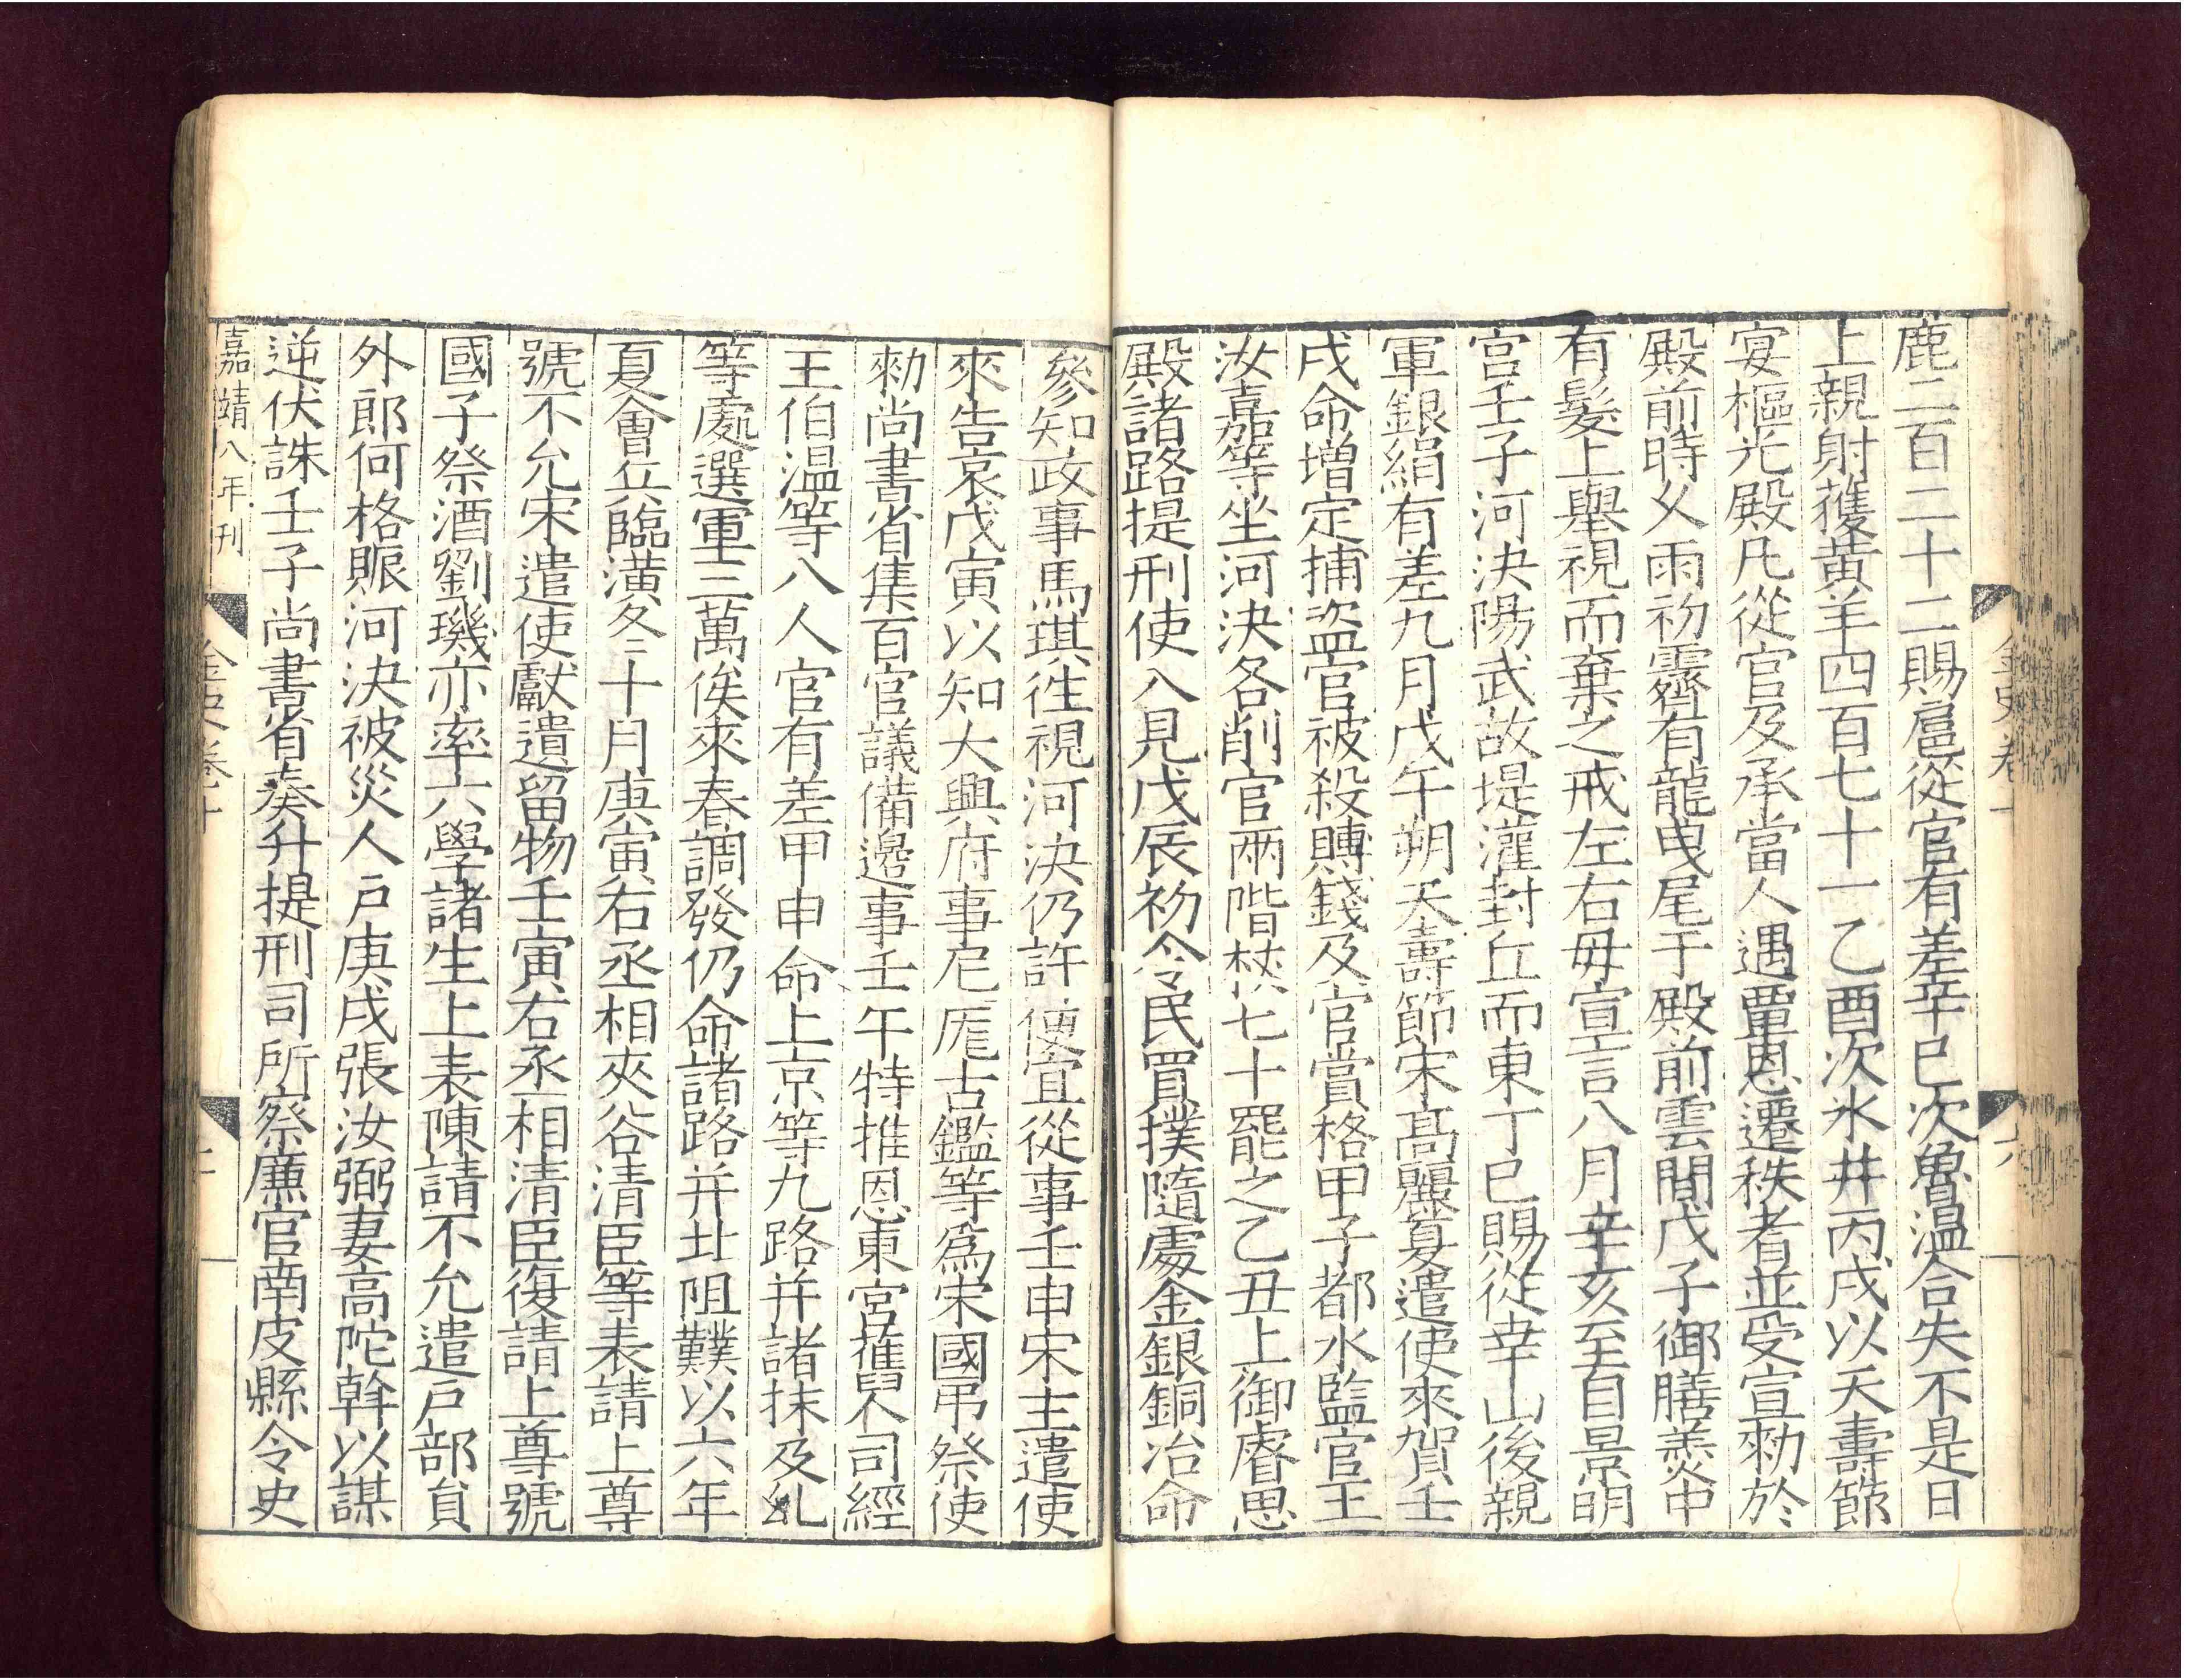 鹿二百二十二賜扈從官有差辛巳次魯温合失不是日
上親射獲黄羊四百七十一乙酉次氷井丙戌以天壽節
宴樞光殿凡從官及承當人遇覃恩遷秩者並受宣勑於
殿前時乆雨初霽有龍曳尾于殿前雲間戊子御膳羮中
有髮上舉視而棄之戒左右毋宣言八月辛亥至自景明
宫壬子河決陽武故堤灌封丘而東丁巳賜從幸山後親
軍銀絹有差九月戊午朔天壽節宋髙麗夏遣使來賀壬
戌命增定捕盗官被殺賻錢及官賞格甲子都水監官王
汝嘉等坐河決各削官兩階杖七十罷之乙丑上御睿思
殿諸路提刑使入見戊辰初令民買撲隨處金銀銅冶命
參知政事馬琪往視河決仍許便宜從事壬申宋主遣使
來告哀戊寅以知大興府事尼厖古鑑等爲宋國弔祭使
勑尚書省集百官議備邊事壬午特推恩東宫舊人司經
王伯温等八人官有差甲申命上京等九路并諸抹及乣
等處選軍三萬俟來春調發仍命諸路并北阻䪁以六年
夏會兵臨潢冬十月庚寅右丞相夾谷清臣等表請上尊
號不允宋遣使獻遺留物壬寅右丞相清臣復請上尊號
國子祭酒劉璣亦率六學諸生上表陳請不允遣户部貟
外郎何格賑河決被災人戸庚戌張汝弼妻高陀斡以謀
逆伏誅壬子尚書省奏升提刑司所察廉官南皮縣令史
嘉靖八年刊
金史卷十